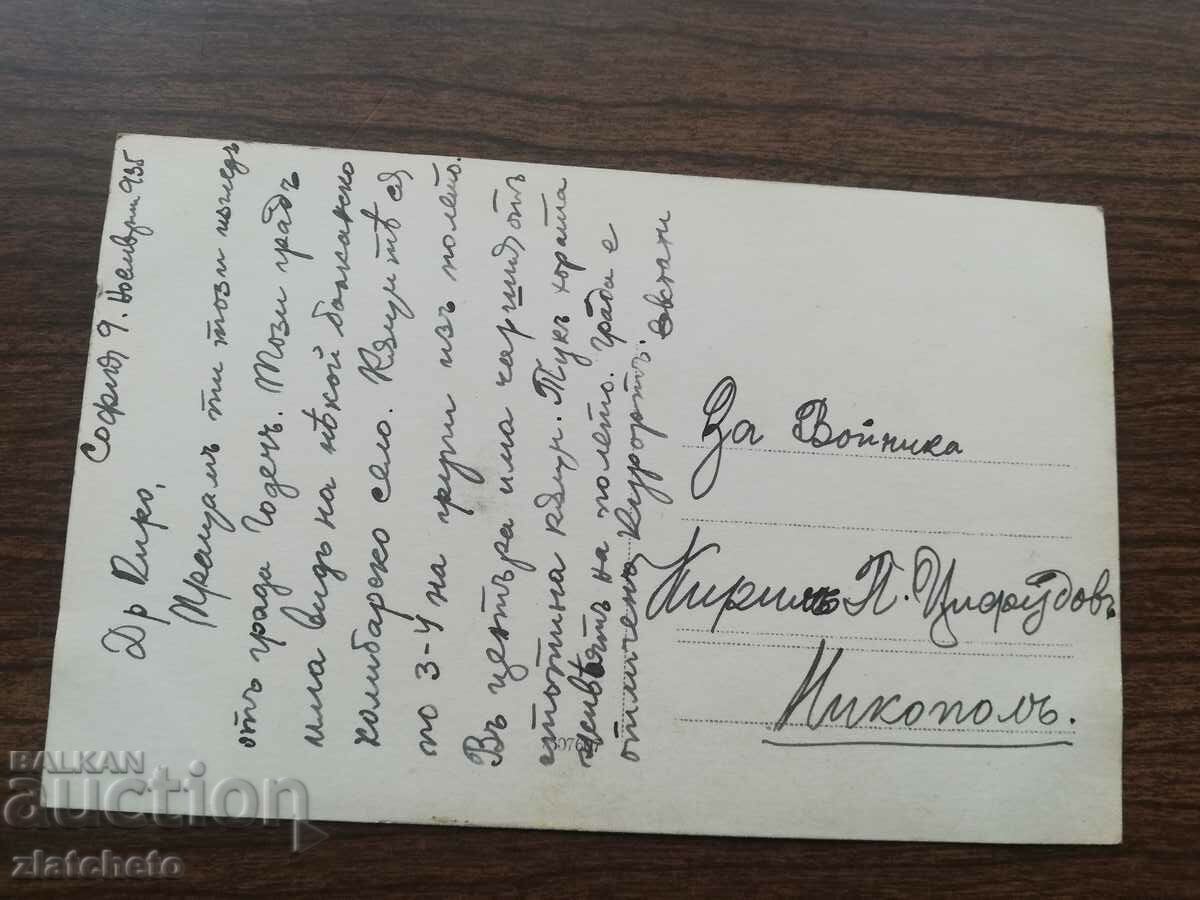 София 9. Ноемврий 935
Др Киро,
Пращамъ ти този изгледъ
отъ града Годечъ. Този градъ
има видъ на нѣкой балканско
камбарско село. Кѫщитѣ ся
по 3-4 на групи изъ полето.
Въ центъра има чаршия отъ
стотина кѫщи. Тукъ хората
живѣятъ на полето. Града е
отличенъ Курортъ.
За Войника
Кирилъ П.
Никополъ.
BALKAN
auction
zlatcheto